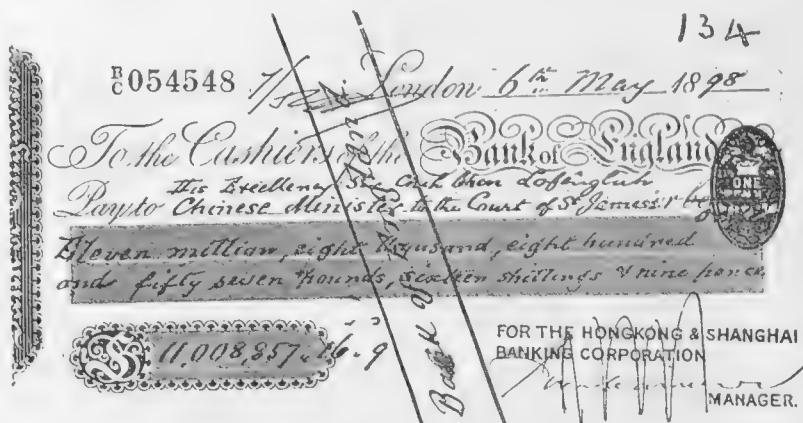 134
B/C 054548 London 6th May 1898
To the Cashiers of the Bank of England
His Excellency Sir Chih Chen Lofengluh
Pay to Chinese Minister to the Court of St James's or
ONE
Eleven million, eight thousand, eight hundred
and fifty seven Pounds, sixteen shillings & nine pence
£ 11,008,857. 16. 9
Bank of England
FOR THE HONGKONG & SHANGHAI
BANKING CORPORATION
MANAGER.